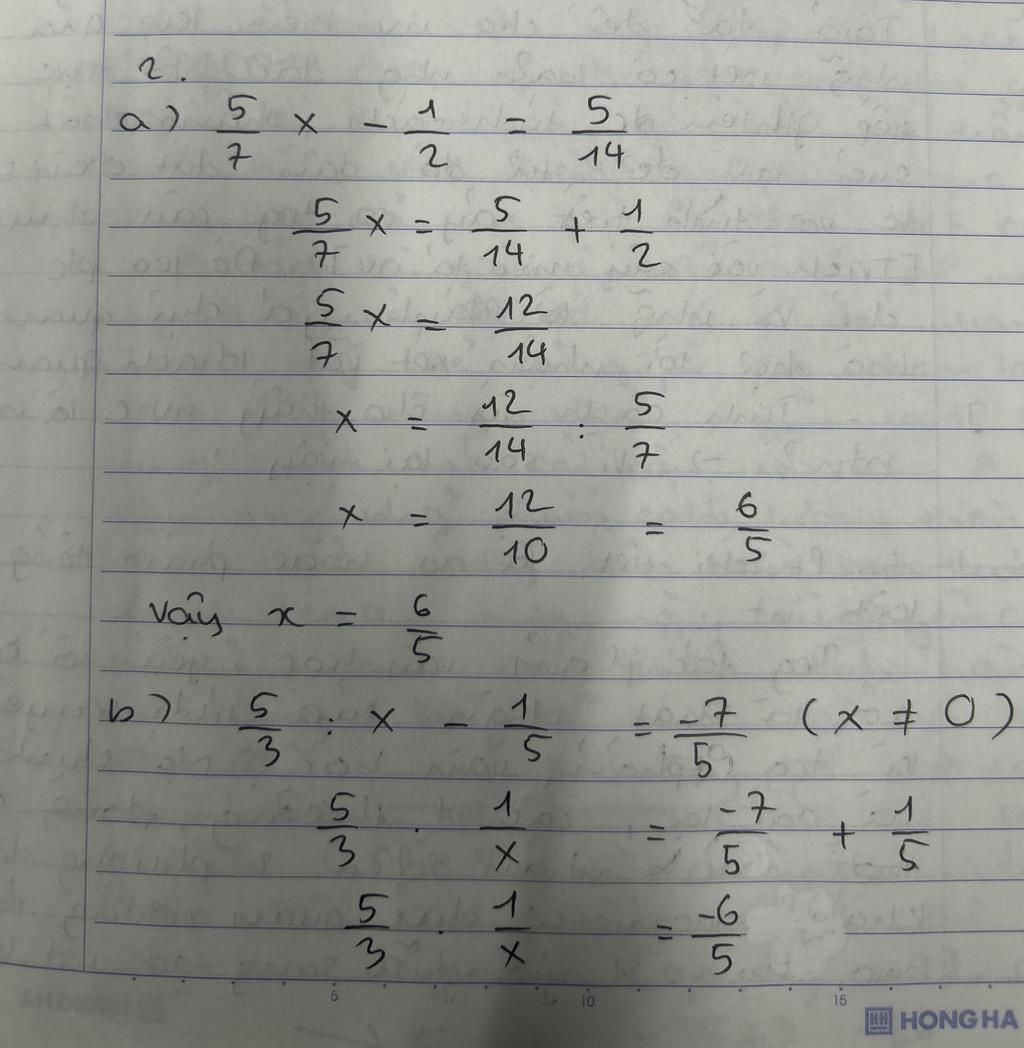 2.
a) 5/7 x - 1/2 = 5/14
5/7 x = 5/14 + 1/2
5/7 x = 12/14
x = 12/14 : 5/7
x = 12/10 = 6/5
vậy x = 6/5
b) 5/3 : x - 1/5 = -7/5 (x ≠ 0)
5/3 . 1/x = -7/5 + 1/5
5/3 . 1/x = -6/5
5 10 15
HONG HA